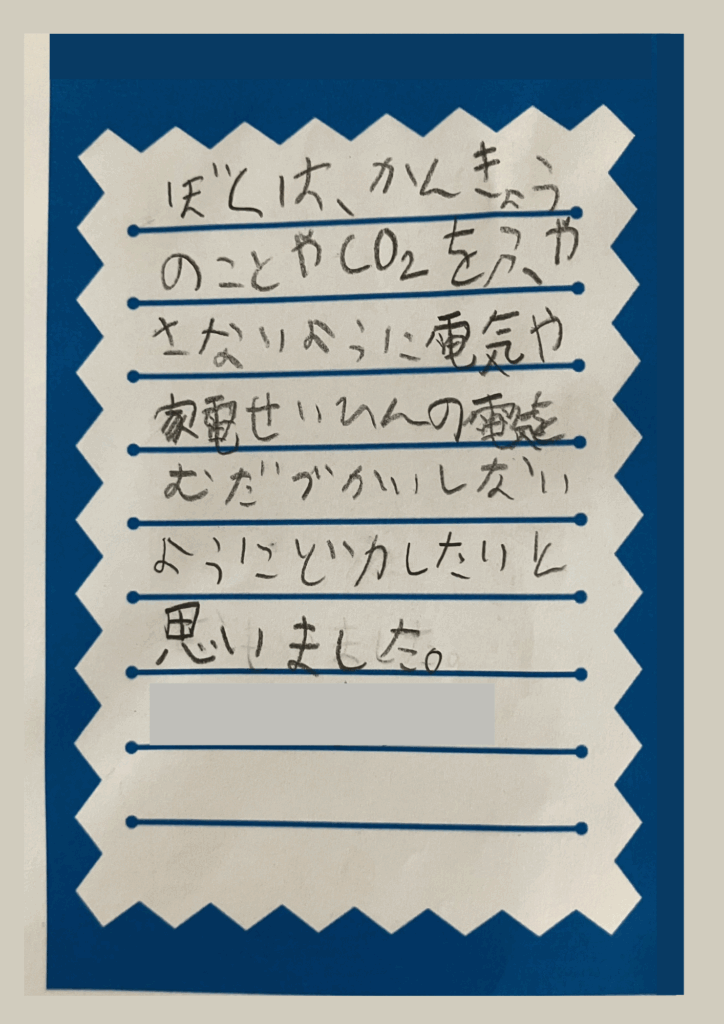 ぼくは、かんきょう
のことやCO₂をふや
さないように電気や
家電せいひんの電気を
むだづかいしない
ようにど力したいと
思いました。